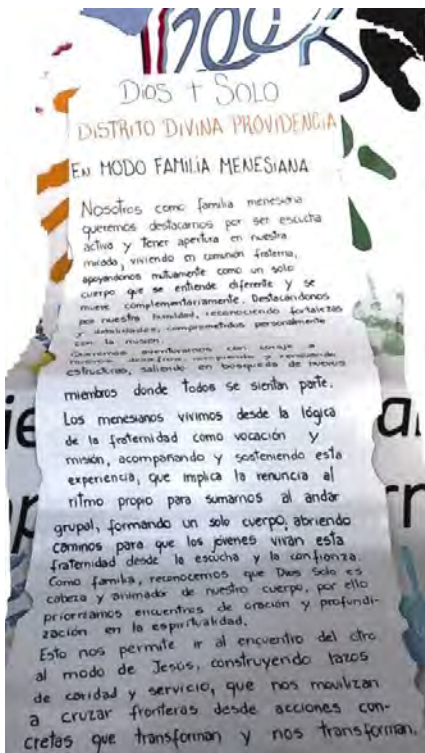 Dios + Solo
DISTRITO DIVINA PROVIDENCIA
EN MODO FAMILIA MENESIANA
Nosotros como familia menesiana
queremos destacarnos por ser escucha
activa y tener apertura en nuestra
mirada, viviendo en comunión fraterna,
apoyándonos mutuamente como un solo
cuerpo que se entiende diferente y se
mueve complementariamente. Destacándonos
por nuestra humildad, reconociendo fortalezas
y debilidades, comprometidos personalmente
con la misión.
Queremos aventurarnos con coraje a
nuevos desafíos, rompiendo y renovando
estructuras, saliendo en búsqueda de nuevos
miembros donde todos se sientan parte.
Los menesianos vivimos desde la lógica
de la fraternidad como vocación y
misión, acompañando y sosteniendo esta
experiencia, que implica la renuncia al
ritmo propio para sumarnos al andar
grupal, formando un solo cuerpo, abriendo
caminos para que los jóvenes vivan esta
fraternidad desde la escucha y la confianza.
Como familia, reconocemos que Dios Solo es
cabeza y animador de nuestro cuerpo, por ello
priorizamos encuentros de oración y profundi-
zación en la espiritualidad.
Esto nos permite ir al encuentro del otro
al modo de Jesús, construyendo lazos
de caridad y servicio, que nos movilizan
a cruzar fronteras desde acciones con-
cretas que transforman y nos transforman.